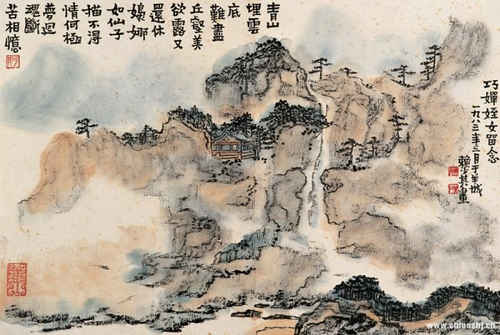 青山
埋雲
底
難盡
丘壑美
欲露又
還休
嬝娜
如仙子
描不得
情何極
夢迴
魂斷
苦相憶
巧嬋姪女留念
一九八三年三月于羊城
賴少其畫